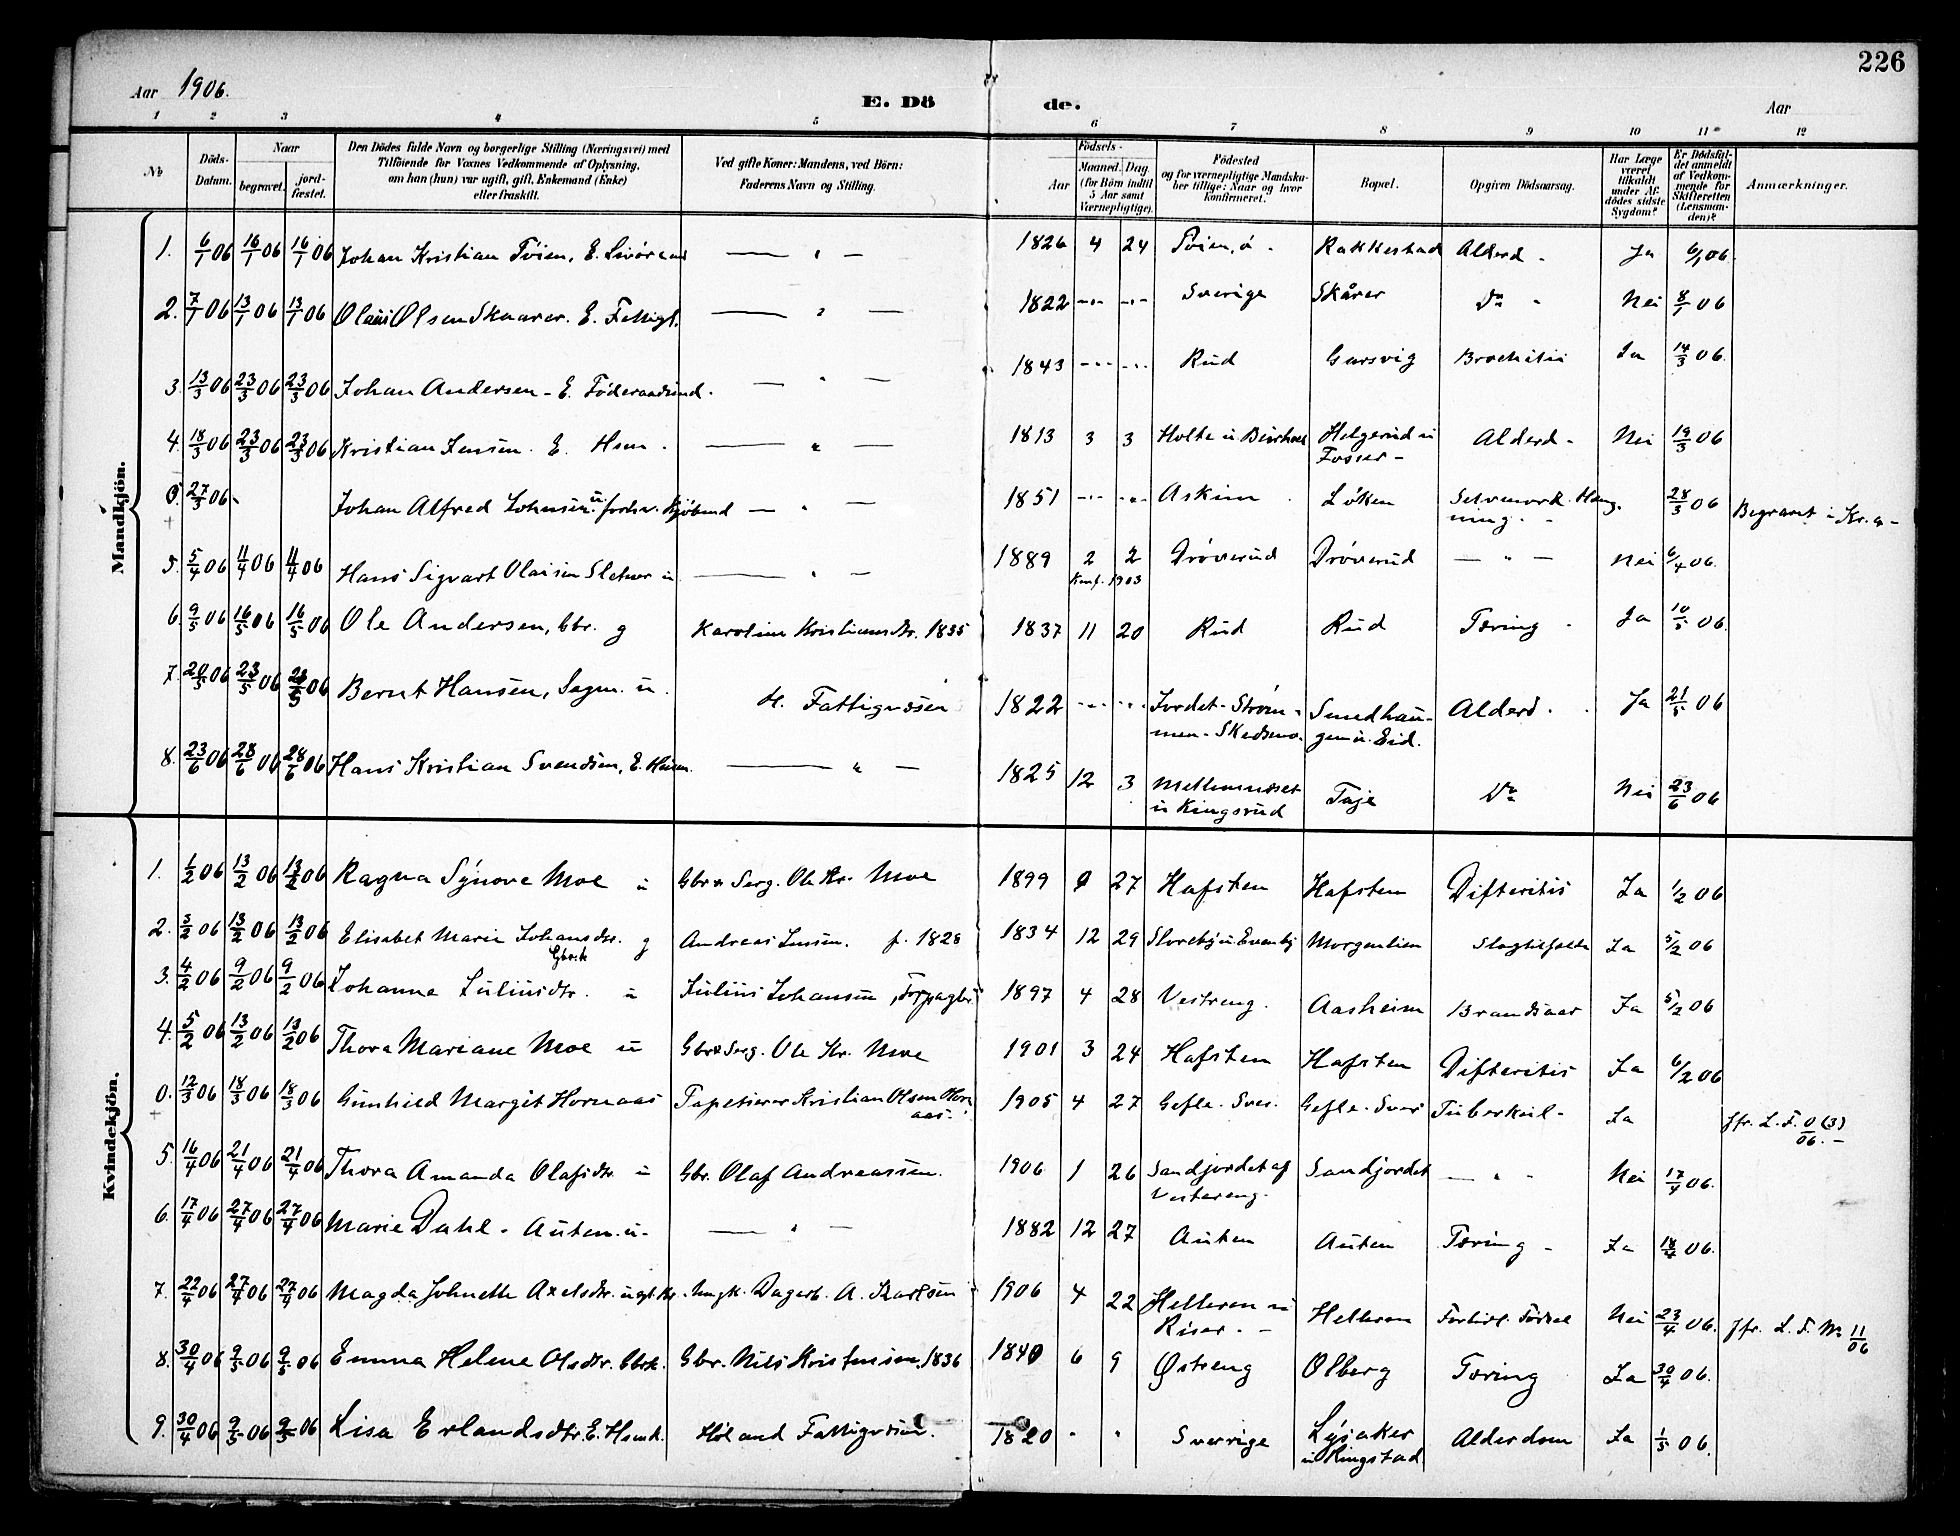 226
Aar 1906.
E. Dö de.
Aar
1 2 3 4 5 6 7 8 9 10 11 12
No
Döds-Datum.
Naar
begravet.
jord-fæstet.
Den Dödes fulde Navn og borgerlige Stilling (Næringsvei) med
Tilföiende for Voxnes Vedkommende af Oplysning,
om han (hun) var ugift, gift, Enkemand (Enke)
eller fraskilt.
Ved gifte Koner: Mandens, ved Börn:
Faderens Navn og Stilling.
Födsels-
Aar
Maaned. Dag
(for Börn indtil
5 Aar samt
Værnepligtige).
Födested
og for værnepligtige Mandska-
ber tillige: Naar og hvor
konfirmeret.
Bopæl.
Opgiven Dödsaarsag.
Har Læge
været
tilkaldt
under Af-
dödes sidste
Sygdom?
Er Dödsfal-
det anmeldt
af Vedkom-
mende for
Skifteretten
(Lensman-
den)?
Anmærkninger.
Mandkjön.
1. 6/1 06 16/1 06 16/1 06 Johan Kristian Töien, E. — „ — 1826 4 24 Töien, ö. Rakkestad Alderd. Ja 6/1 06.
2. 7/1 06 13/1 06 13/1 06 Olaus Olsen Skaarer. E. Fattigl. — „ — 1822 --- --- Sverige Skårer Do „ Nei 8/1 06
3. 13/3 06 23/3 06 23/3 06 Johan Andersen - E. Föderaadsmd. — „ — 1843 --- --- Rud Garsvig Ja 14/3 06.
4. 18/3 06 23/3 06 23/3 06 Kristian Jensen. E. Hsm. — „ — 1813 3 3 Holte u Bjerkeli Helgerud u
Fosser - Alderd - Nei 19/3 06
0. 27/3 06 - Johan Alfred Johnsen u. forhv. Kjöbmd — „ — 1851 --- --- Askim Löken Selvmord. Hæng-
ning. - 28/3 06 Begravet i Kr.a -
5. 5/4 06 11/4 06 11/4 06 Hans Sigvart Olaisen Sletner u — „ — 1889 2 2
Konf. 1903 Dröverud Dröverud — „ — Nei 6/4 06.
6. 9/5 06 16/5 06 16/5 06 Ole Andersen, bbr. g Karoline Kristiansdtr. 1835 1837 11 20 Rud Rud Tæring - Ja 10/5 06.
7. 20/5 06 23/5 06 23/5 06 Bernt Hansen, Sagm. u. H. Fattigvæsen 1822 --- --- Jordet - Ström-
men - Skedsmo. Smedhau-
gen u. Eid. Alderd. Ja 21/5 06
8. 23/6 06 28/6 06 28/6 06 Hans Kristian Svendsen, E. Husm. — „ — 1825 12 3 Mellemnæset
u Kingsrud Taje Do Nei 23/6 06
Kvindekjön.
1. 1/2 06 13/2 06 13/2 06 Ragna Synove Moe u Gbr & Serg. Ole Kr. Moe 1899 9 27 Hafsten Hafsten Difteritis Ja 1/2 06
2. 3/2 06 13/2 06 13/2 06 Elisabet Marie Johansdtr. g
Gbrk Andreas Jensen. f. 1828 1834 12 29 Morgenlien Slagtilfælde Ja 5/2 06
3. 4/2 06 9/2 06 9/2 06 Johanna Juliusdtr. u Julius Johansen, Forpagter 1897 4 28 Vestreng. Aasheim Brandsaar Ja 5/2 06
4. 5/2 06 13/2 06 13/2 06 Thora Mariane Moe u Gbr & Serg. Ole Kr. Moe 1901 3 24 Hafsten Hafsten Difteritis Ja 6/2 06
0. 12/3 06 18/3 06 18/3 06 Gunhild Margit Hornaas Tapetserer Kristian Olsen Horn
aas. 1905 4 27 Gefle. Sver. Gefle. Sver Tuberkul - Ja Jfr. L. F. 0 (3)/06. -
5. 16/4 06 21/4 06 21/4 06 Thora Amanda Olafsdtr. u Gbr. Olaf Andreassen. 1906 1 26 Sandjordet af
Vestereng. Sandjordet — „ - Nei 17/4 06.
6. 17/4 06 27/4 06 27/4 06 Marie Dahl - Auten. u. — „ — 1882 12 27 Auten Auten Tæring - Ja 18/4 06.
7. 22/4 06 27/4 06 27/4 06 Magda Johnette Axelsdtr. Ungk. Dagarb. A. Karlsen 1906 4 22 Helleren u
Riser. - Helleren Forhdl. Födsel Nei 23/4 06. Jfr. L. F. No 11/06
8. 30/4 06 9/5 06 9/5 06 Emma Helene Olsdtr. Gbrk. Gbr. Nils Kristensen, 1836 1840 6 9 Østreng Olberg Tæring Ja 30/4 06.
9. 30/4 06 9/5 06 9/5 06 Lisa Erlandsdtr. E. Hsmk. Höland Fattigvæsen. 1820 „ „ Sverrige Lysaker
u Ringstad Alderdom Ja 1/5 06.